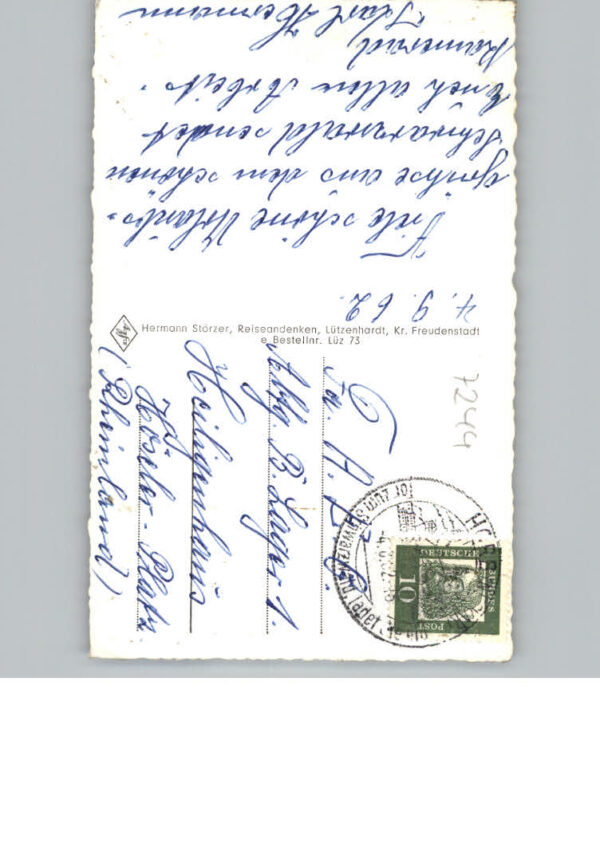 4.9.62.
Viele schöne Urlaubs-
grüße aus dem schönen
Schwarzwald sendet
Euch allen Arbeits-
kamerad
Karl Hermann
Hermann Störzer, Reiseandenken, Lützenhardt, Kr. Freudenstadt
Bestellnr. Lüz 73
Fa. H.
Abtg. B. Lager 1.
Heiligenhaus
Platz
(Rheinland)
7244
HORB
DEUTSCHE
BUNDES
POST
10